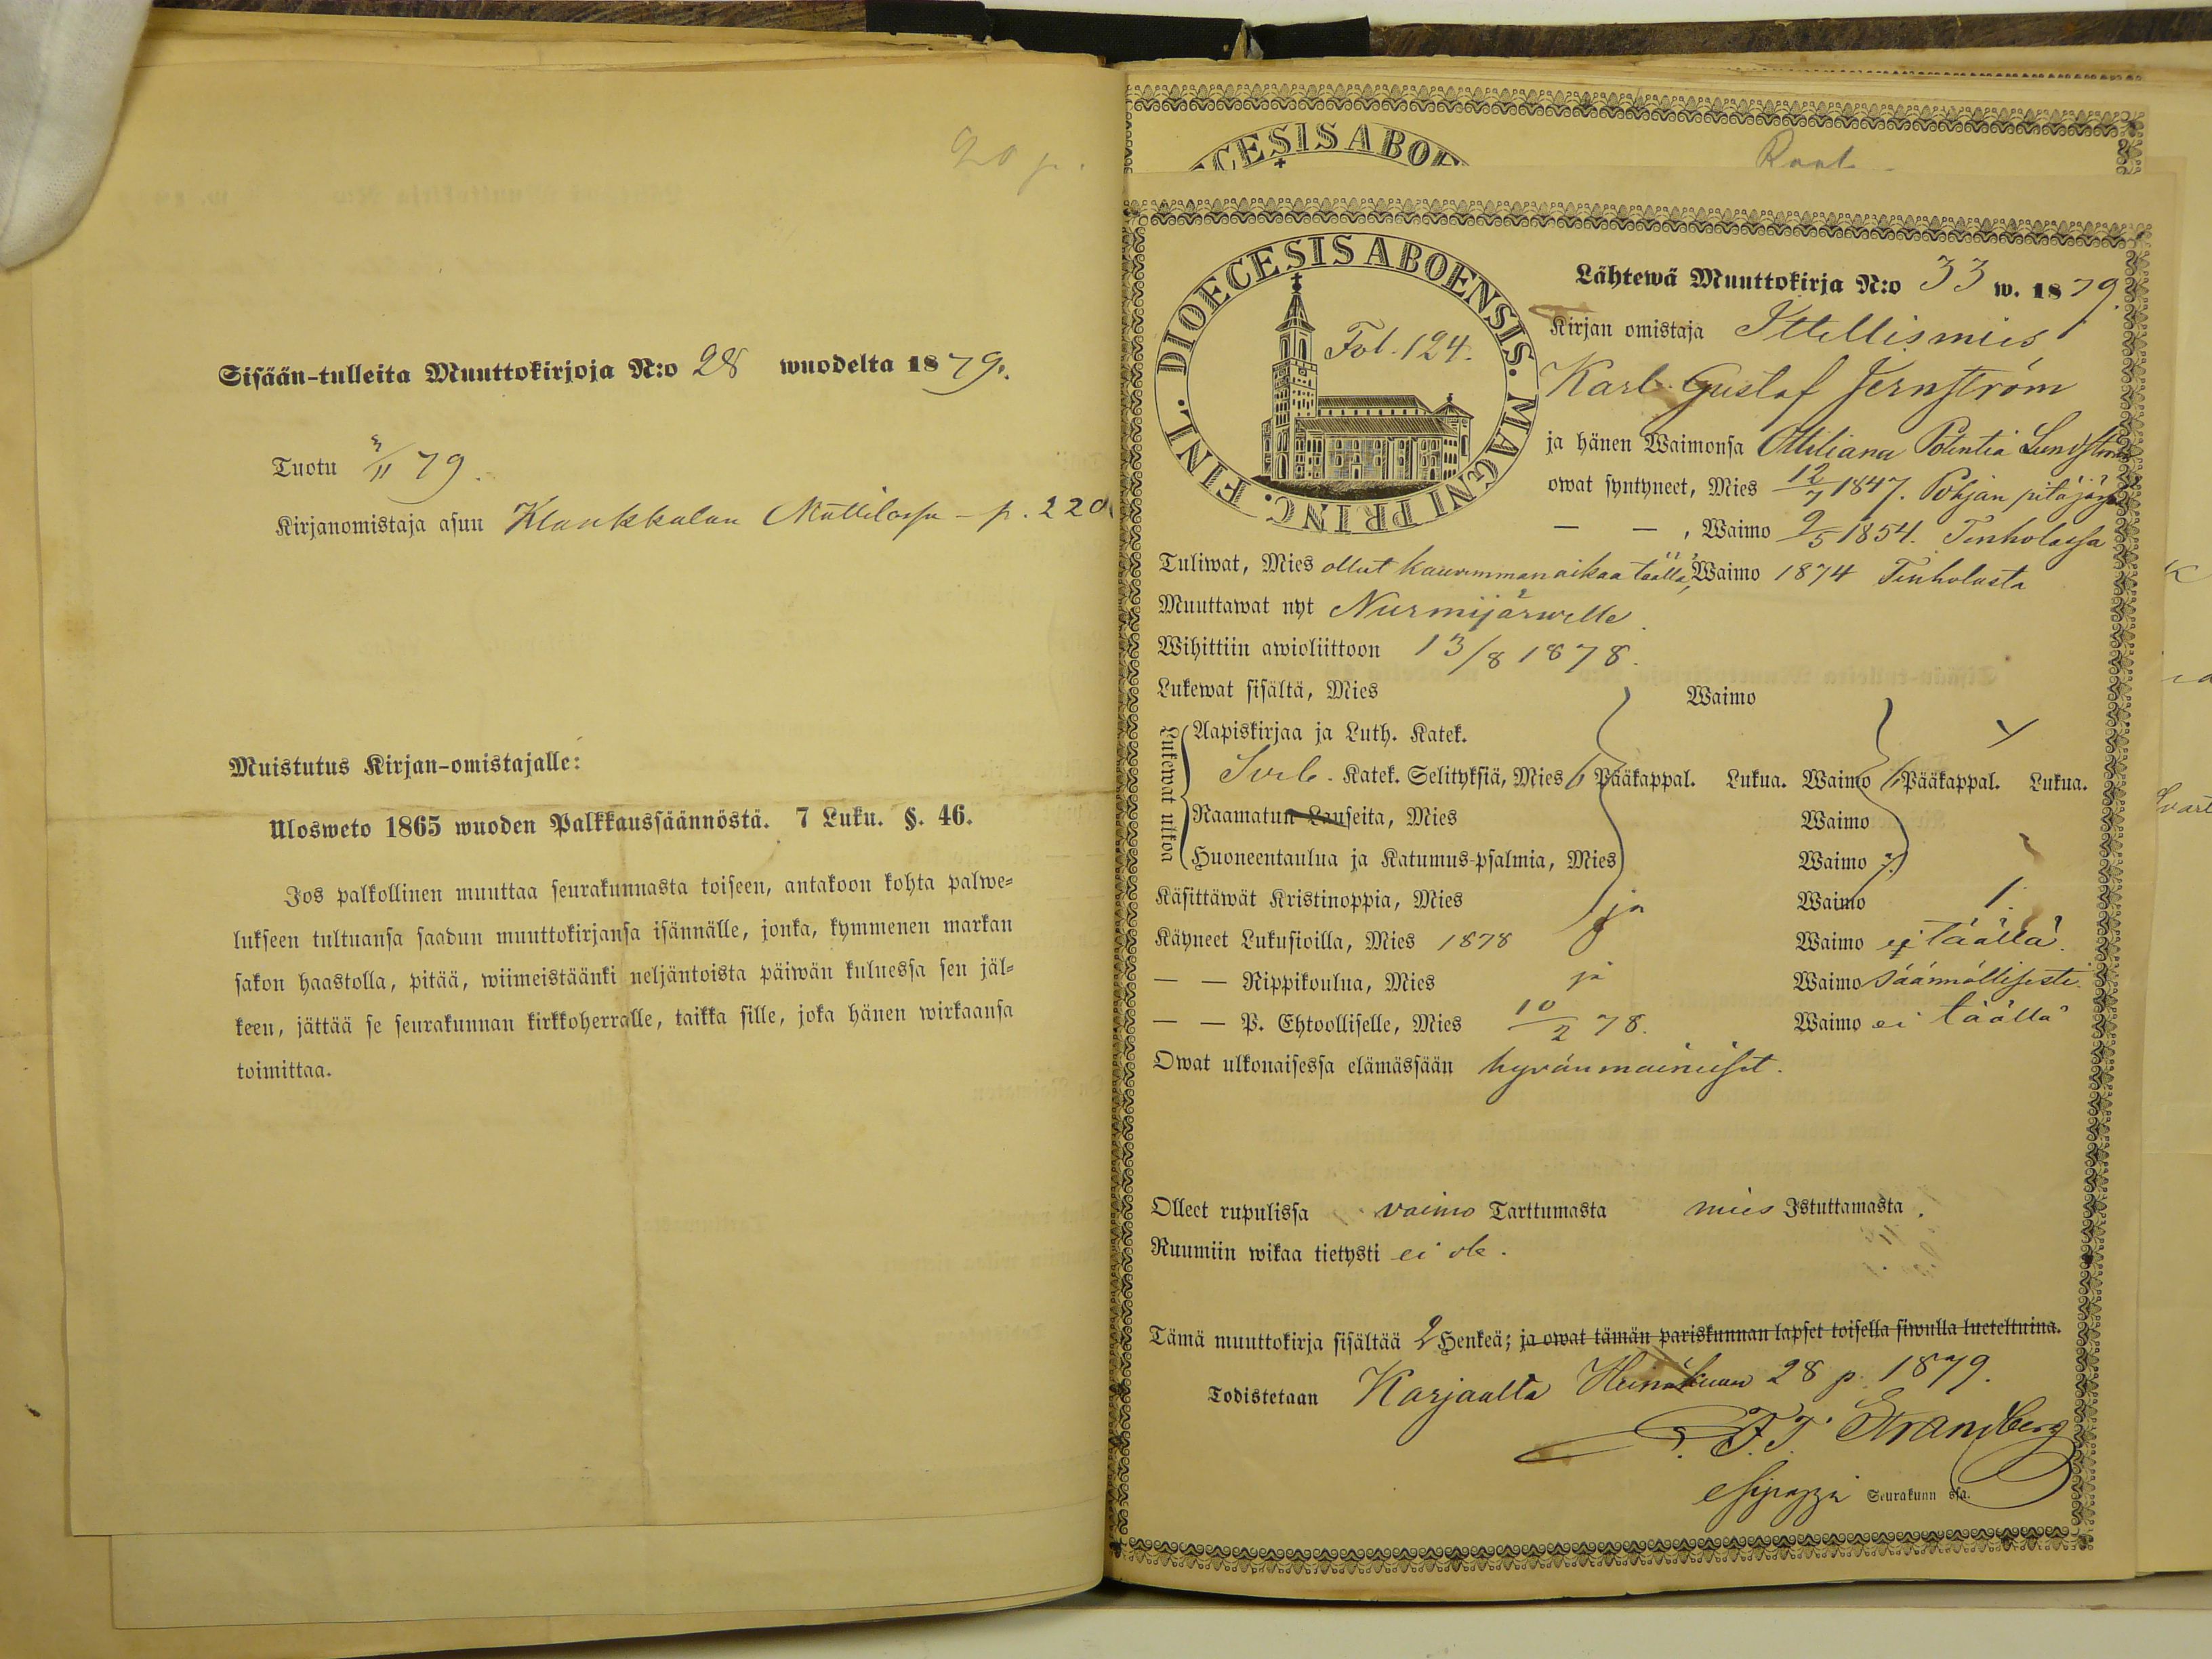 20 p.
Sisään-tulleita Muuttokirjoja N:o 28 wuodelta 1879.
Tuotu 3/11 79.
Kirjanomistaja asuu Klaukkalan Mattilassa - p. 220
Muistutus Kirjan-omistajalle:
Ulosweto 1865 wuoden Palkkaussäännöstä. 7 Luku. §. 46.
Jos palkollinen muuttaa seurakunnasta toiseen, antakoon kohta palwe=
lukseen tultuansa saadun muuttokirjansa isännälle, jonka, kymmenen markan
sakon haastolla, pitää, wiimeistäänki neljäntoista päiwän kuluessa sen jäl=
keen, jättää se seurakunnan kirkkoherralle, taikka sille, joka hänen wirkaansa
toimittaa.
CESIS ABOE
FINL. DIOECESIS ABOENSIS. MAGNI PRINC.
Fol. 124.
Lähtewä Muuttokirja N:o 33 w. 1879.
Kirjan omistaja Itellismies
Karl Gustaf Jernström
ja hänen Waimonsa Ottiliana Potentia Lundström
owat syntyneet, Mies 12/7 1847. Pohjan pitäjäsä
— — , Waimo 9/5 1854. Tenholassa
Tuliwat, Mies ollut kauvemman aikaa täällä, Waimo 1874 Tenholasta
Muuttawat nyt Nurmijärwelle.
Wihittiin awioliittoon 13/8 1878.
Lukewat sisältä, Mies Waimo
Lukewat ulkoa
Aapiskirjaa ja Luth. Katek.
Sveb. Katek. Selityksiä, Mies Pääkappal. Lukua. Waimo Pääkappal. Lukua.
Raamatun Lauseita, Mies Waimo
Huoneentaulua ja Katumus-psalmia, Mies Waimo
Käsittäwät Kristinoppia, Mies Waimo
Käyneet Lukusioilla, Mies 1878 ja Waimo ei täällä.
— — Rippikoulua, Mies ja Waimo säännöllisesti.
— — P. Ehtoolliselle, Mies 10/2 78. Waimo ei täällä
Owat ulkonaisessa elämässään hyvänmainiset.
Olleet rupulissa vaimo Tarttumasta mies Istuttamasta.
Ruumiin wikaa tietysti ei ole.
Tämä muuttokirja sisältää 2 Henkeä; ja owat tämän pariskunnan lapset toisella siwulla lueteltuina.
Todistetaan Karjaalta Heinäkuun 28 p. 1879.
F. T. Strandberg
Seurakunn ssa.